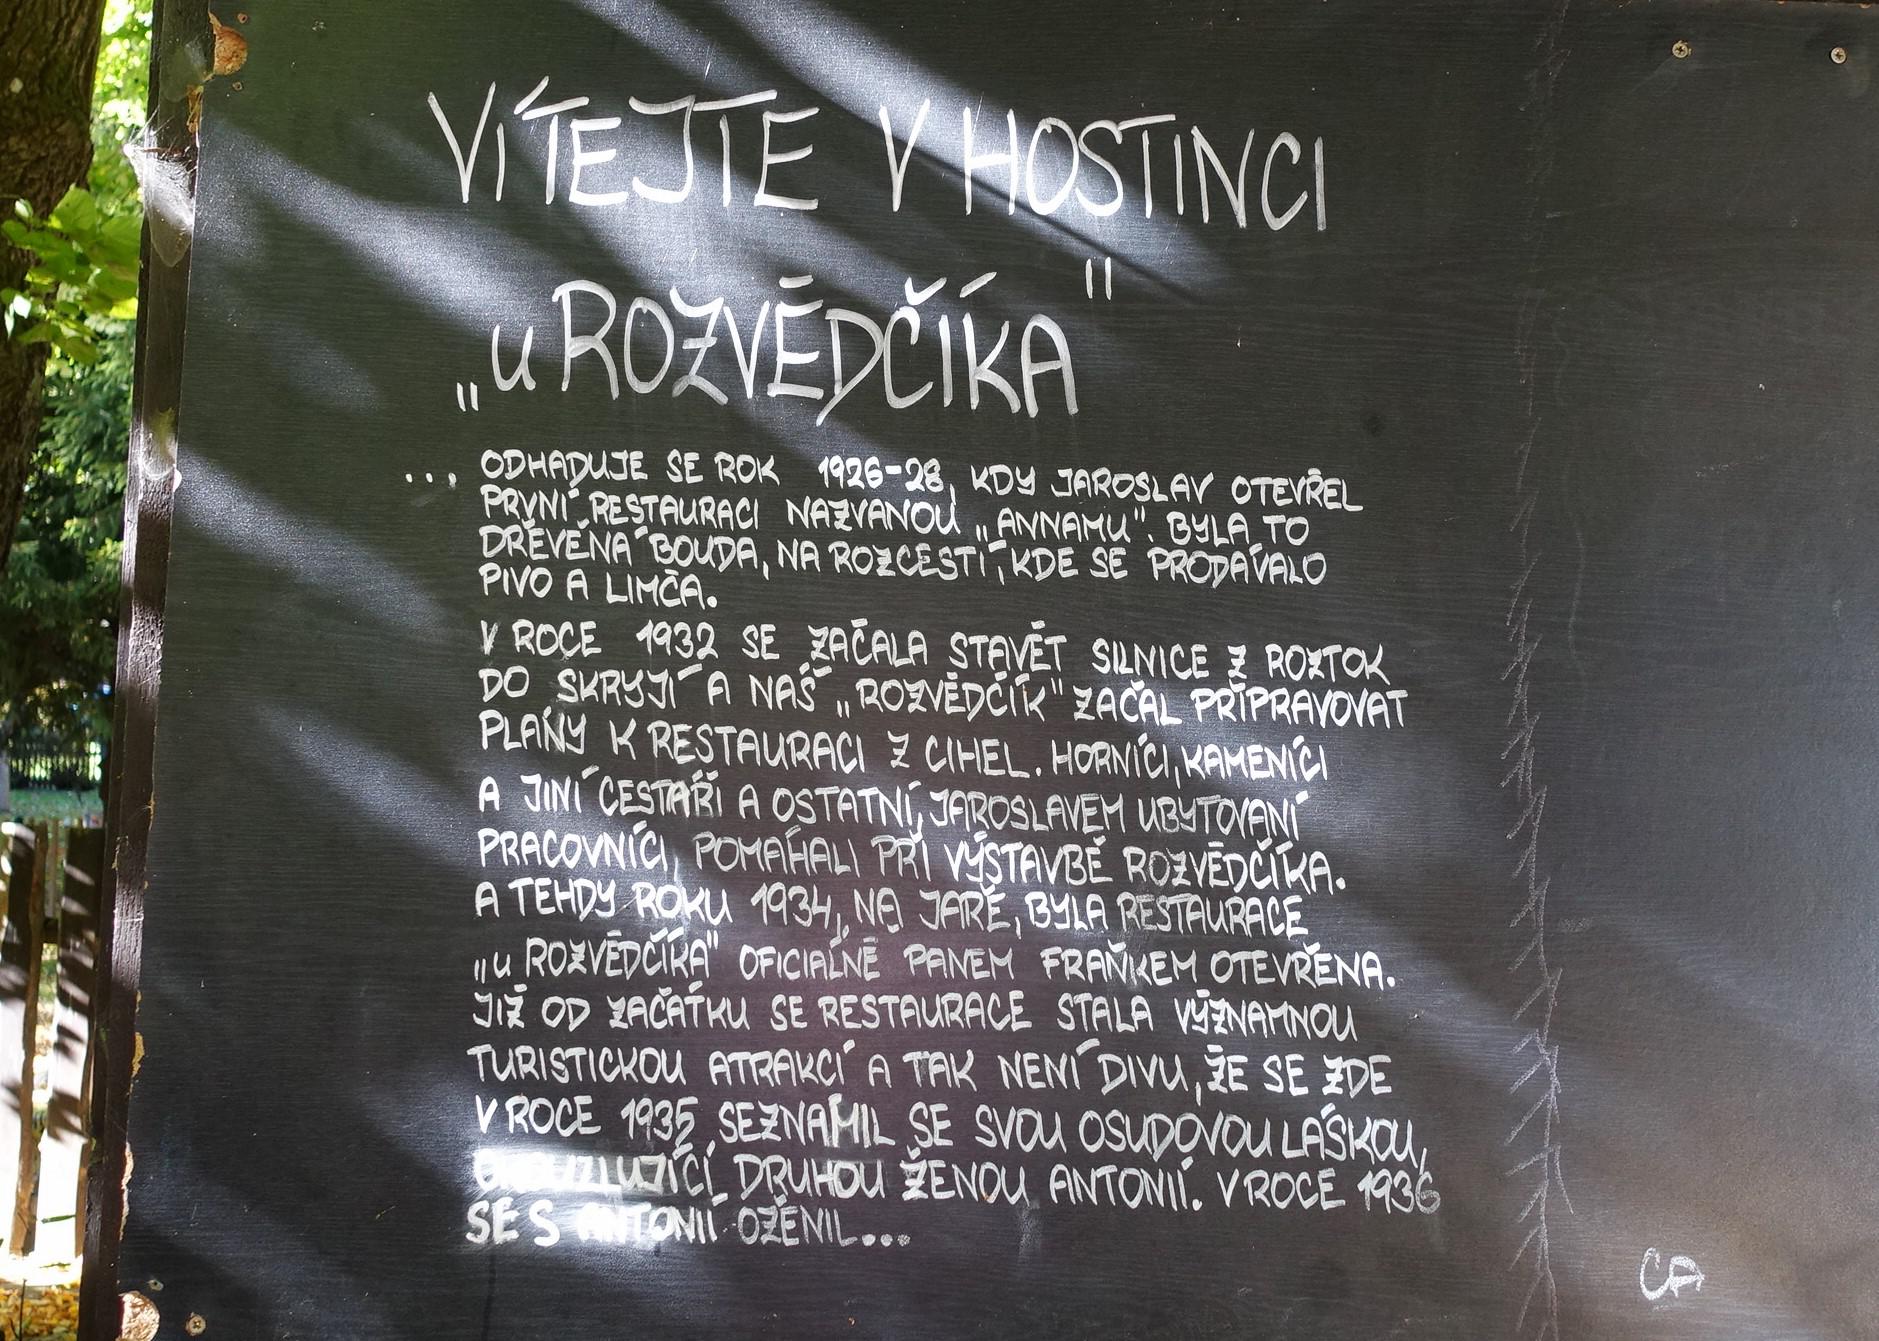 VÍTEJTE V HOSTINCI
„U ROZVĚDČÍKA"
... ODHADUJE SE ROK 1926-28, KDY JAROSLAV OTEVŘEL
PRVNÍ RESTAURACI NAZVANOU „ANNAMU". BYLA TO
DŘEVĚNÁ BOUDA, NA ROZCESTÍ, KDE SE PRODÁVALO
PIVO A LIMČA.
V ROCE 1932 SE ZAČALA STAVĚT SILNICE Z ROZTOK
DO SKRYJÍ A NÁŠ „ROZVĚDČÍK" ZAČAL PŘIPRAVOVAT
PLÁNY K RESTAURACI Z CIHEL. HORNÍCI, KAMENÍCI
A JINÍ CESTÁŘI A OSTATNÍ, JAROSLAVEM UBYTOVANÍ
PRACOVNÍCI, POMÁHALI PŘI VÝSTAVBĚ ROZVĚDČÍKA.
A TEHDY ROKU 1934, NA JAŘE, BYLA RESTAURACE
„U ROZVĚDČÍKA" OFICIÁLNĚ PANEM FRAŇKEM OTEVŘENA.
JIŽ OD ZAČÁTKU SE RESTAURACE STALA VÝZNAMNOU
TURISTICKOU ATRAKCÍ A TAK NENÍ DIVU, ŽE SE ZDE
V ROCE 1935 SEZNÁMIL SE SVOU OSUDOVOU LÁSKOU,
DRUHOU ŽENOU ANTONIÍ. V ROCE 1936
SE S ANTONIÍ OŽENIL...
CA